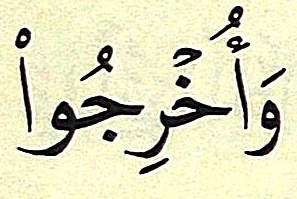 وَأُخۡرِجُواْ